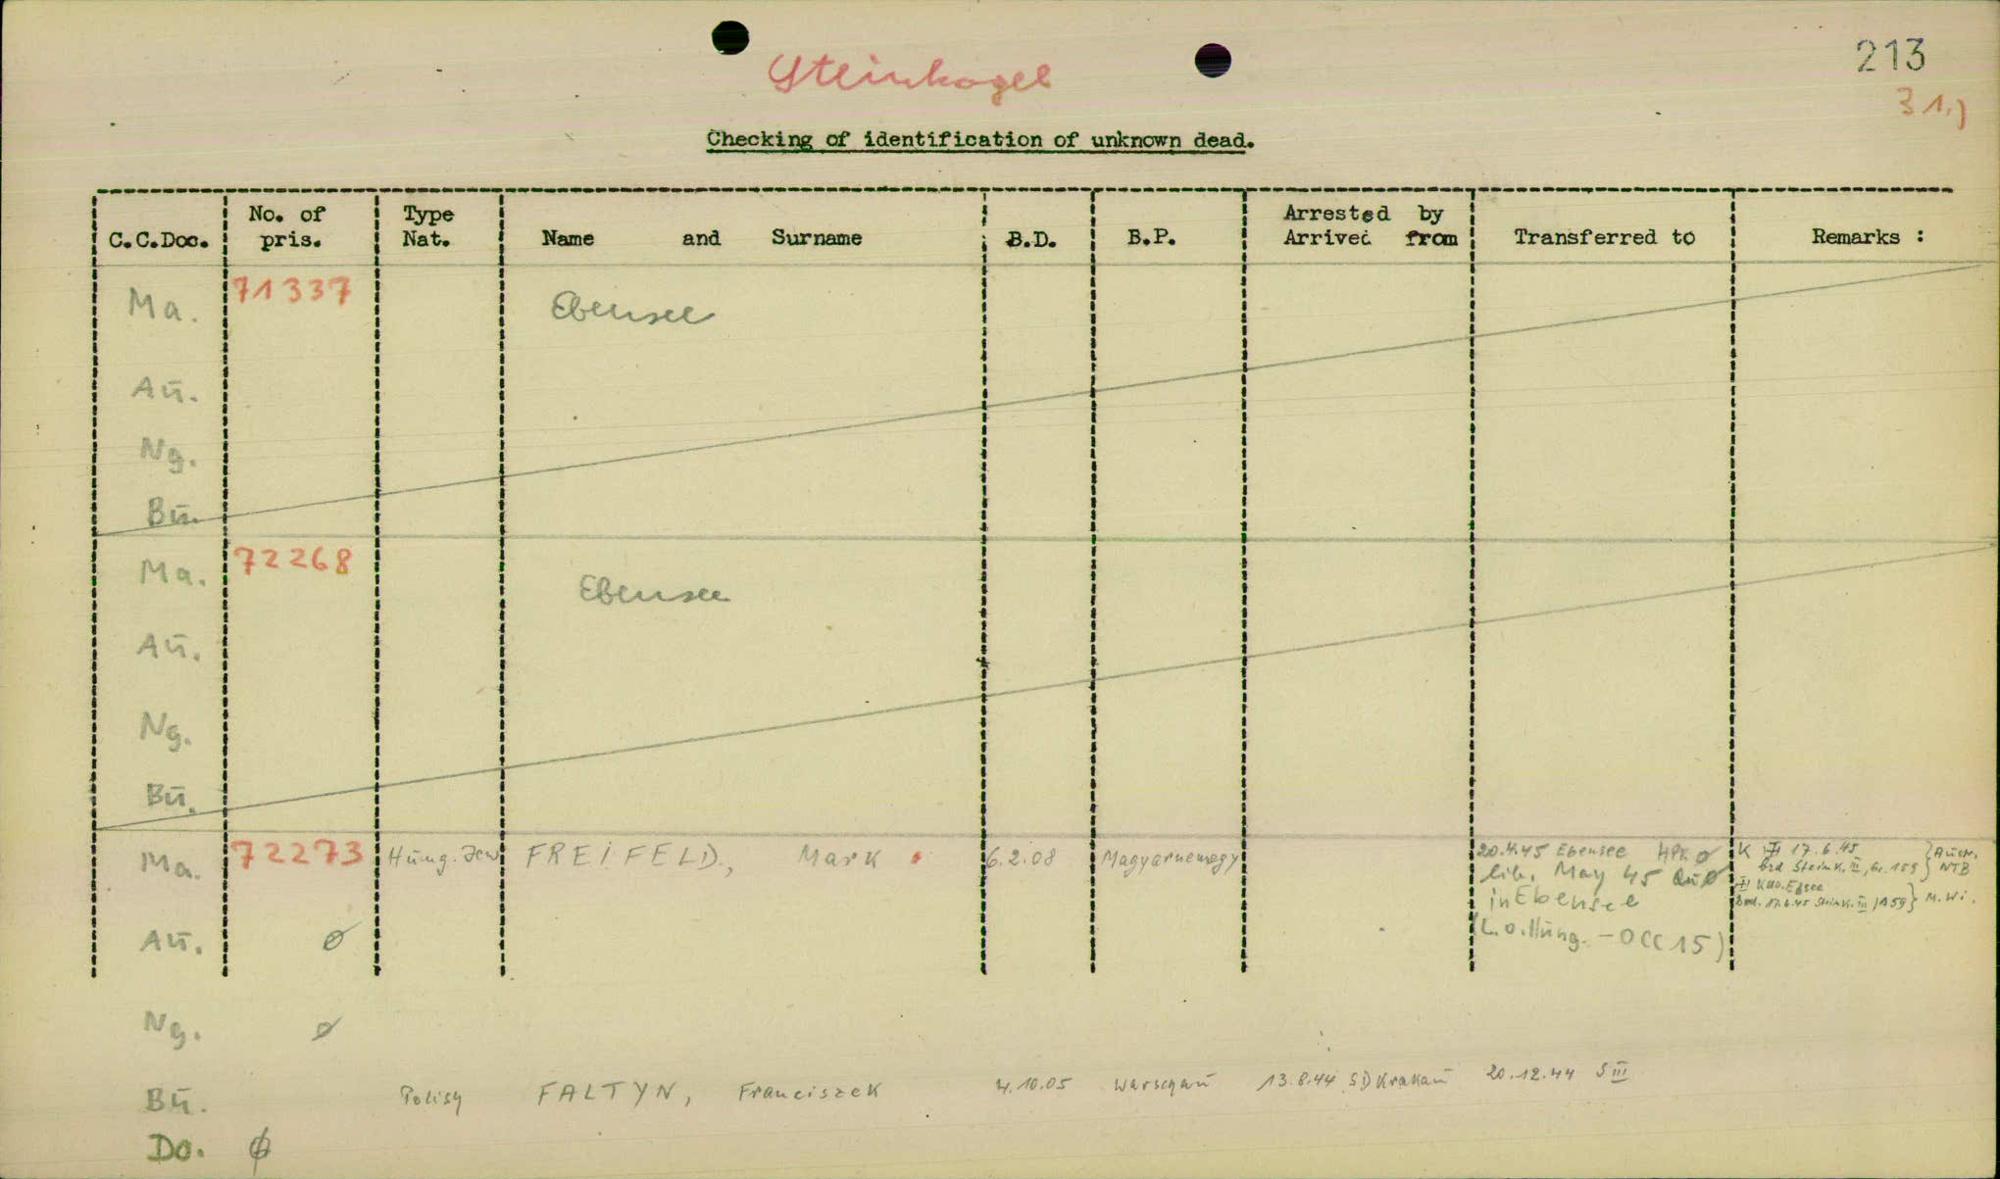 213
Steinkogel
31.)
Checking of identification of unknown dead.
C.C.Doc. No. of pris. Type Nat. Name and Surname B.D. B.P. Arrested by Arrived from Transferred to Remarks :
Ma. 71337 Ebensee
Aū.
Ng.
Bū.
Ma. 72268 Ebensee
Aū.
Ng.
Bū.
Ma. 72273 Hūng. Jew FREIFELD, Mark 6.2.08 Magyarnemegy 20.4.45 Ebensee K 17.6.45
lib. May 45
in Ebensee
(L.o.Hūng. - OCC 15)
M. Wi.
Aū. ø
Ng. ø
Bū. Polish FALTYN, Franciszek 4.10.05 Warschaū 13.8.44 SD Krakaū 20.12.44 S III
Do. ø